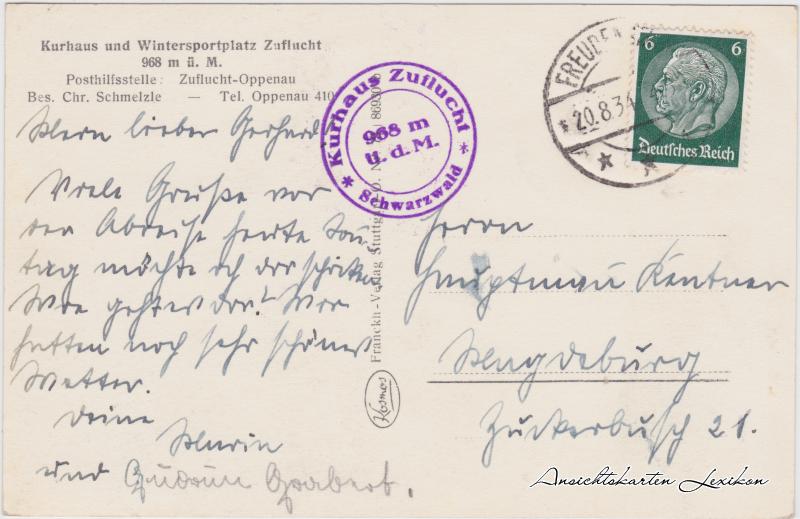 Kurhaus und Wintersportplatz Zuflucht
968 m ü. M.
Posthilfsstelle: Zuflucht-Oppenau
Bes. Chr. Schmelzle — Tel. Oppenau 410
Mein lieber Gerhard
Viele Grüße vor
der Abreise heute Sonn
tag möchte ich dir schicken
Wie geht es dir? Wir
hatten noch sehr schönes
Wetter.
Deine
und Gudrun Grabert.
Kurhaus Zuflucht
968 m
ü. d. M.
* Schwarzwald *
Franckh-Verlag Stuttgart
Kosmos
FREUDEN
20.8.34
6 6
Deutsches Reich
Herrn
Hauptmann Kentner
Magdeburg
Zuckerbusch 21.
Ansichtskarten Lexikon